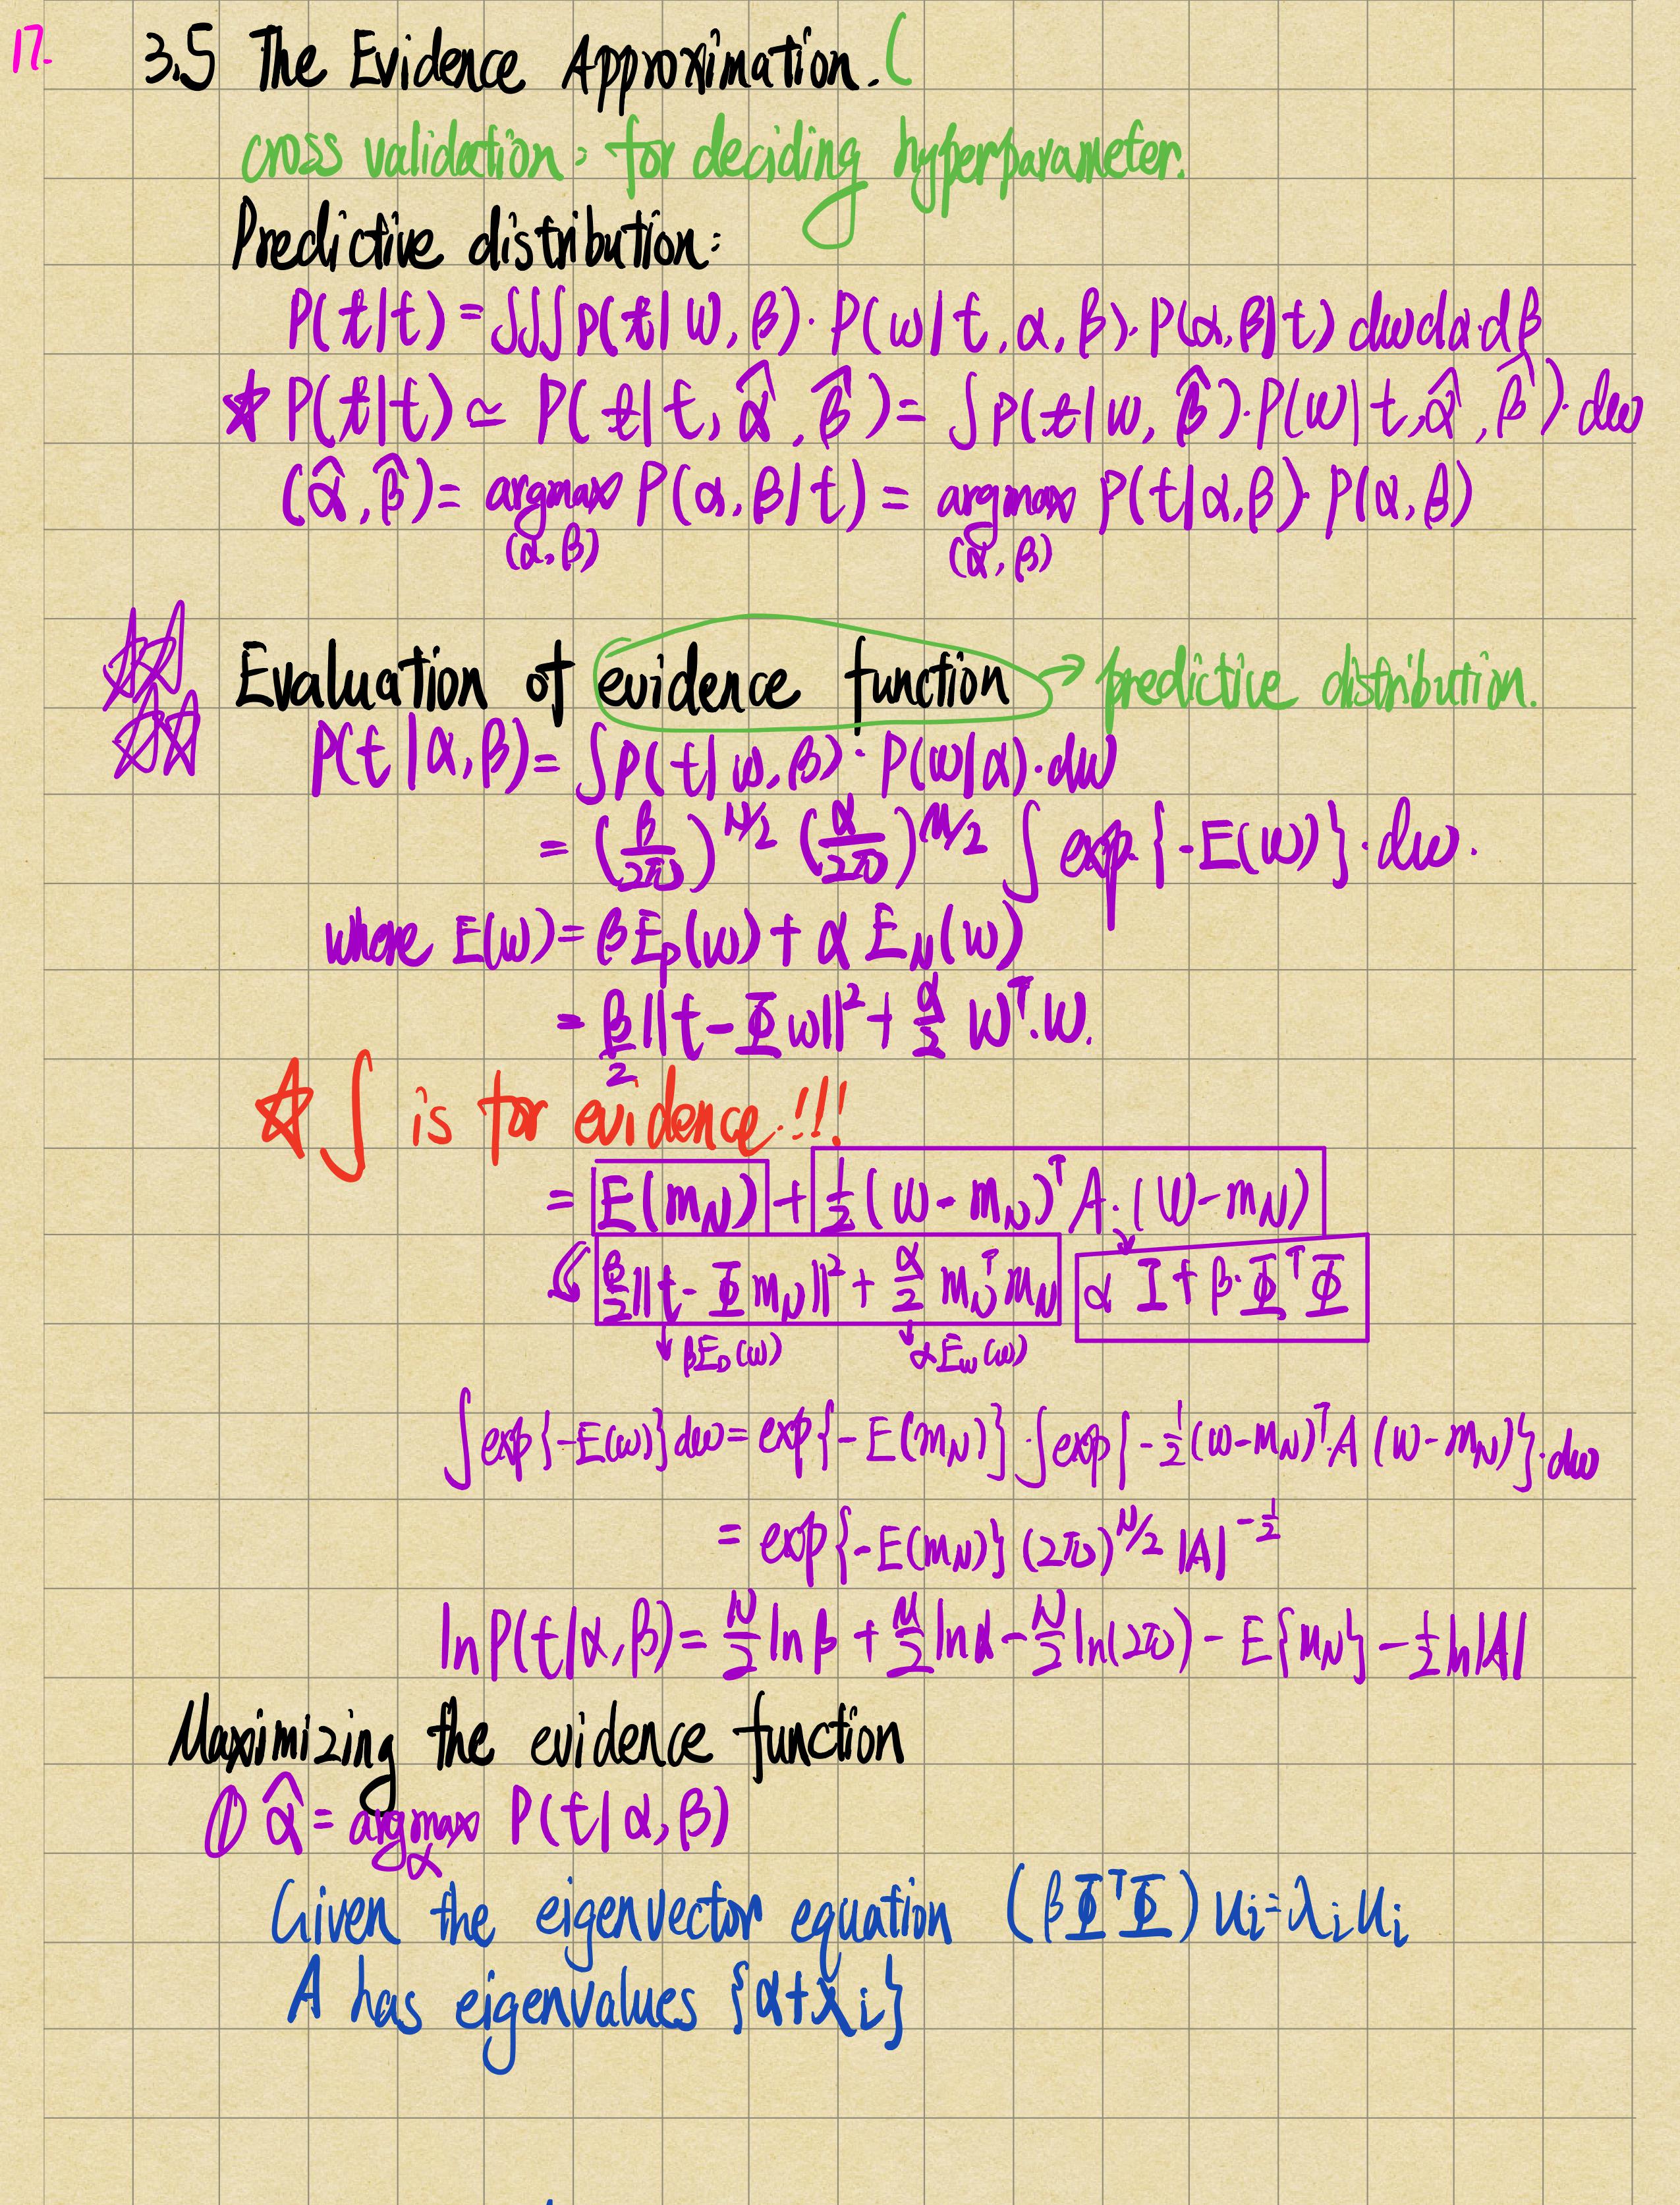 17.
3.5 The Evidence Approximation. (
cross validation: for deciding hyperparameter.
Predictive distribution:
P(t|t) = ∫∫∫ p(t|w, β)· P(w|t, α, β)· P(α, β|t) dwdα·dβ
☆ P(t|t) ≃ P(t|t, α̂, β̂) = ∫p(t|w, β̂)·P(w|t, α̂, β̂)· dw
(α̂, β̂) = argmax P(α, β|t) = argmax P(t|α,β)· P(α, β)
(α, β) (α, β)
Evaluation of evidence function → predictive distribution.
P(t|α, β) = ∫p(t|w, β)· P(w|α)·dw
= (β/2π)^N/2 (α/2π)^M/2 ∫ exp. {-E(w)}· dw.
where E(w) = βE_D(w) + α E_W(w)
= β/2 ||t - Φw||² + α/2 wᵀ·w.
☆ ∫ is for evidence.!!!
= E(m_N) + ½(w - m_N)ᵀ A·(w - m_N)
β/2||t - Φm_N||² + α/2 m_Nᵀm_N αI + β·ΦᵀΦ
↓ βE_D(w) ↓ αE_w(w)
∫exp{-E(w)}dw = exp{-E(m_N)}·∫exp{-½(w-m_N)ᵀ·A (w-m_N)}·dw
= exp{-E(m_N)} (2π)^M/2 |A|^-½
ln P(t|α, β) = N/2 ln β + M/2 ln α - N/2 ln(2π) - E{m_N} - ½ ln|A|
Maximizing the evidence function
① α̂ = argmax P(t|α, β)
α
Given the eigenvector equation (βΦᵀΦ) u_i = λ_i u_i
A has eigenvalues {α+λ_i}